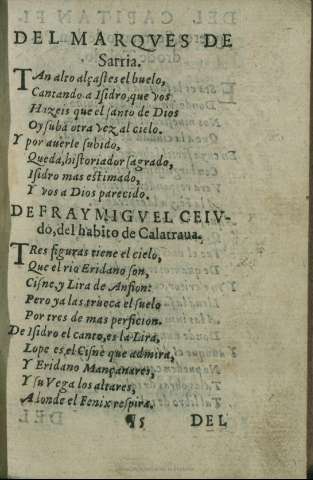 DEL MARQVES DE
Sarria.
TAn alto alçastes el buelo,
Cantando a Isidro, que vos
Hizeis que el santo de Dios
Oy suba otra vez al cielo.
Y por auerle subido,
Queda, historiador sagrado,
Isidro mas estimado,
Y vos a Dios parecido.
DE FRAY MIGVEL CEIV-
do, del habito de Calatraua.
TRes figuras tiene el cielo,
Que el rio Eridano son,
Cisne, y Lira de Anfion:
Pero ya las trueca el suelo
Por tres de mas perficion.
De Isidro el canto, es la Lira,
Lope es, el Cisne que admira,
Y Eridano Mançanares,
Y su Vega los altares,
A londe el Fenix respira.
¶5 DEL